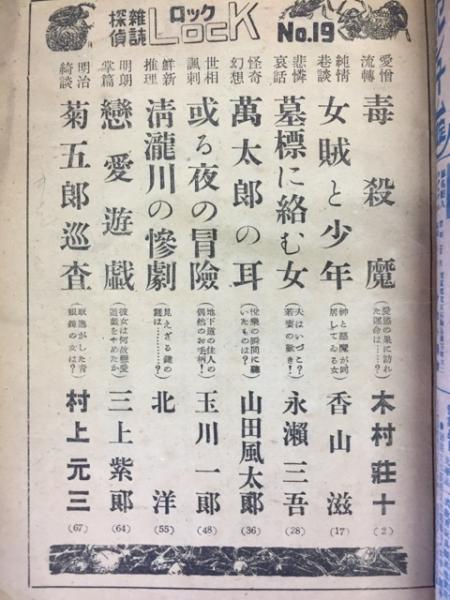 探偵雑誌
ロック
LOCK
No.19
愛憎流轉 毒殺魔 (愛慾の果に訪れた運命は……?) 木村荘十 (2)
純情巷談 女賊と少年 (神と惡魔が同居してゐる女) 香山滋 (17)
悲憐哀話 墓標に絡む女 (夫はいづこ?若妻の歎き!) 永瀬三吾 (28)
怪奇幻想 萬太郎の耳 (悅樂の瞬間に聽いたものは?) 山田風太郎 (36)
世相諷刺 或る夜の冒險 (地下道の住人の偶然のお手柄!) 玉川一郎 (48)
鮮新推理 淸瀧川の慘劇 (見えざる鍵の謎は……?) 北洋 (55)
明朗掌篇 戀愛遊戲 (彼女は何故戀愛遊戲をやめたか) 三上紫郎 (64)
明治綺談 菊五郎巡査 (取逃がした青銀鍔の女は?) 村上元三 (67)